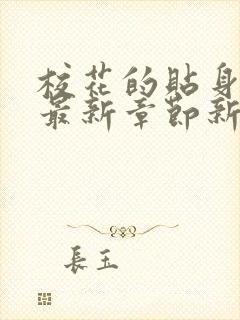 校花的貼身
最新章節新
長玉